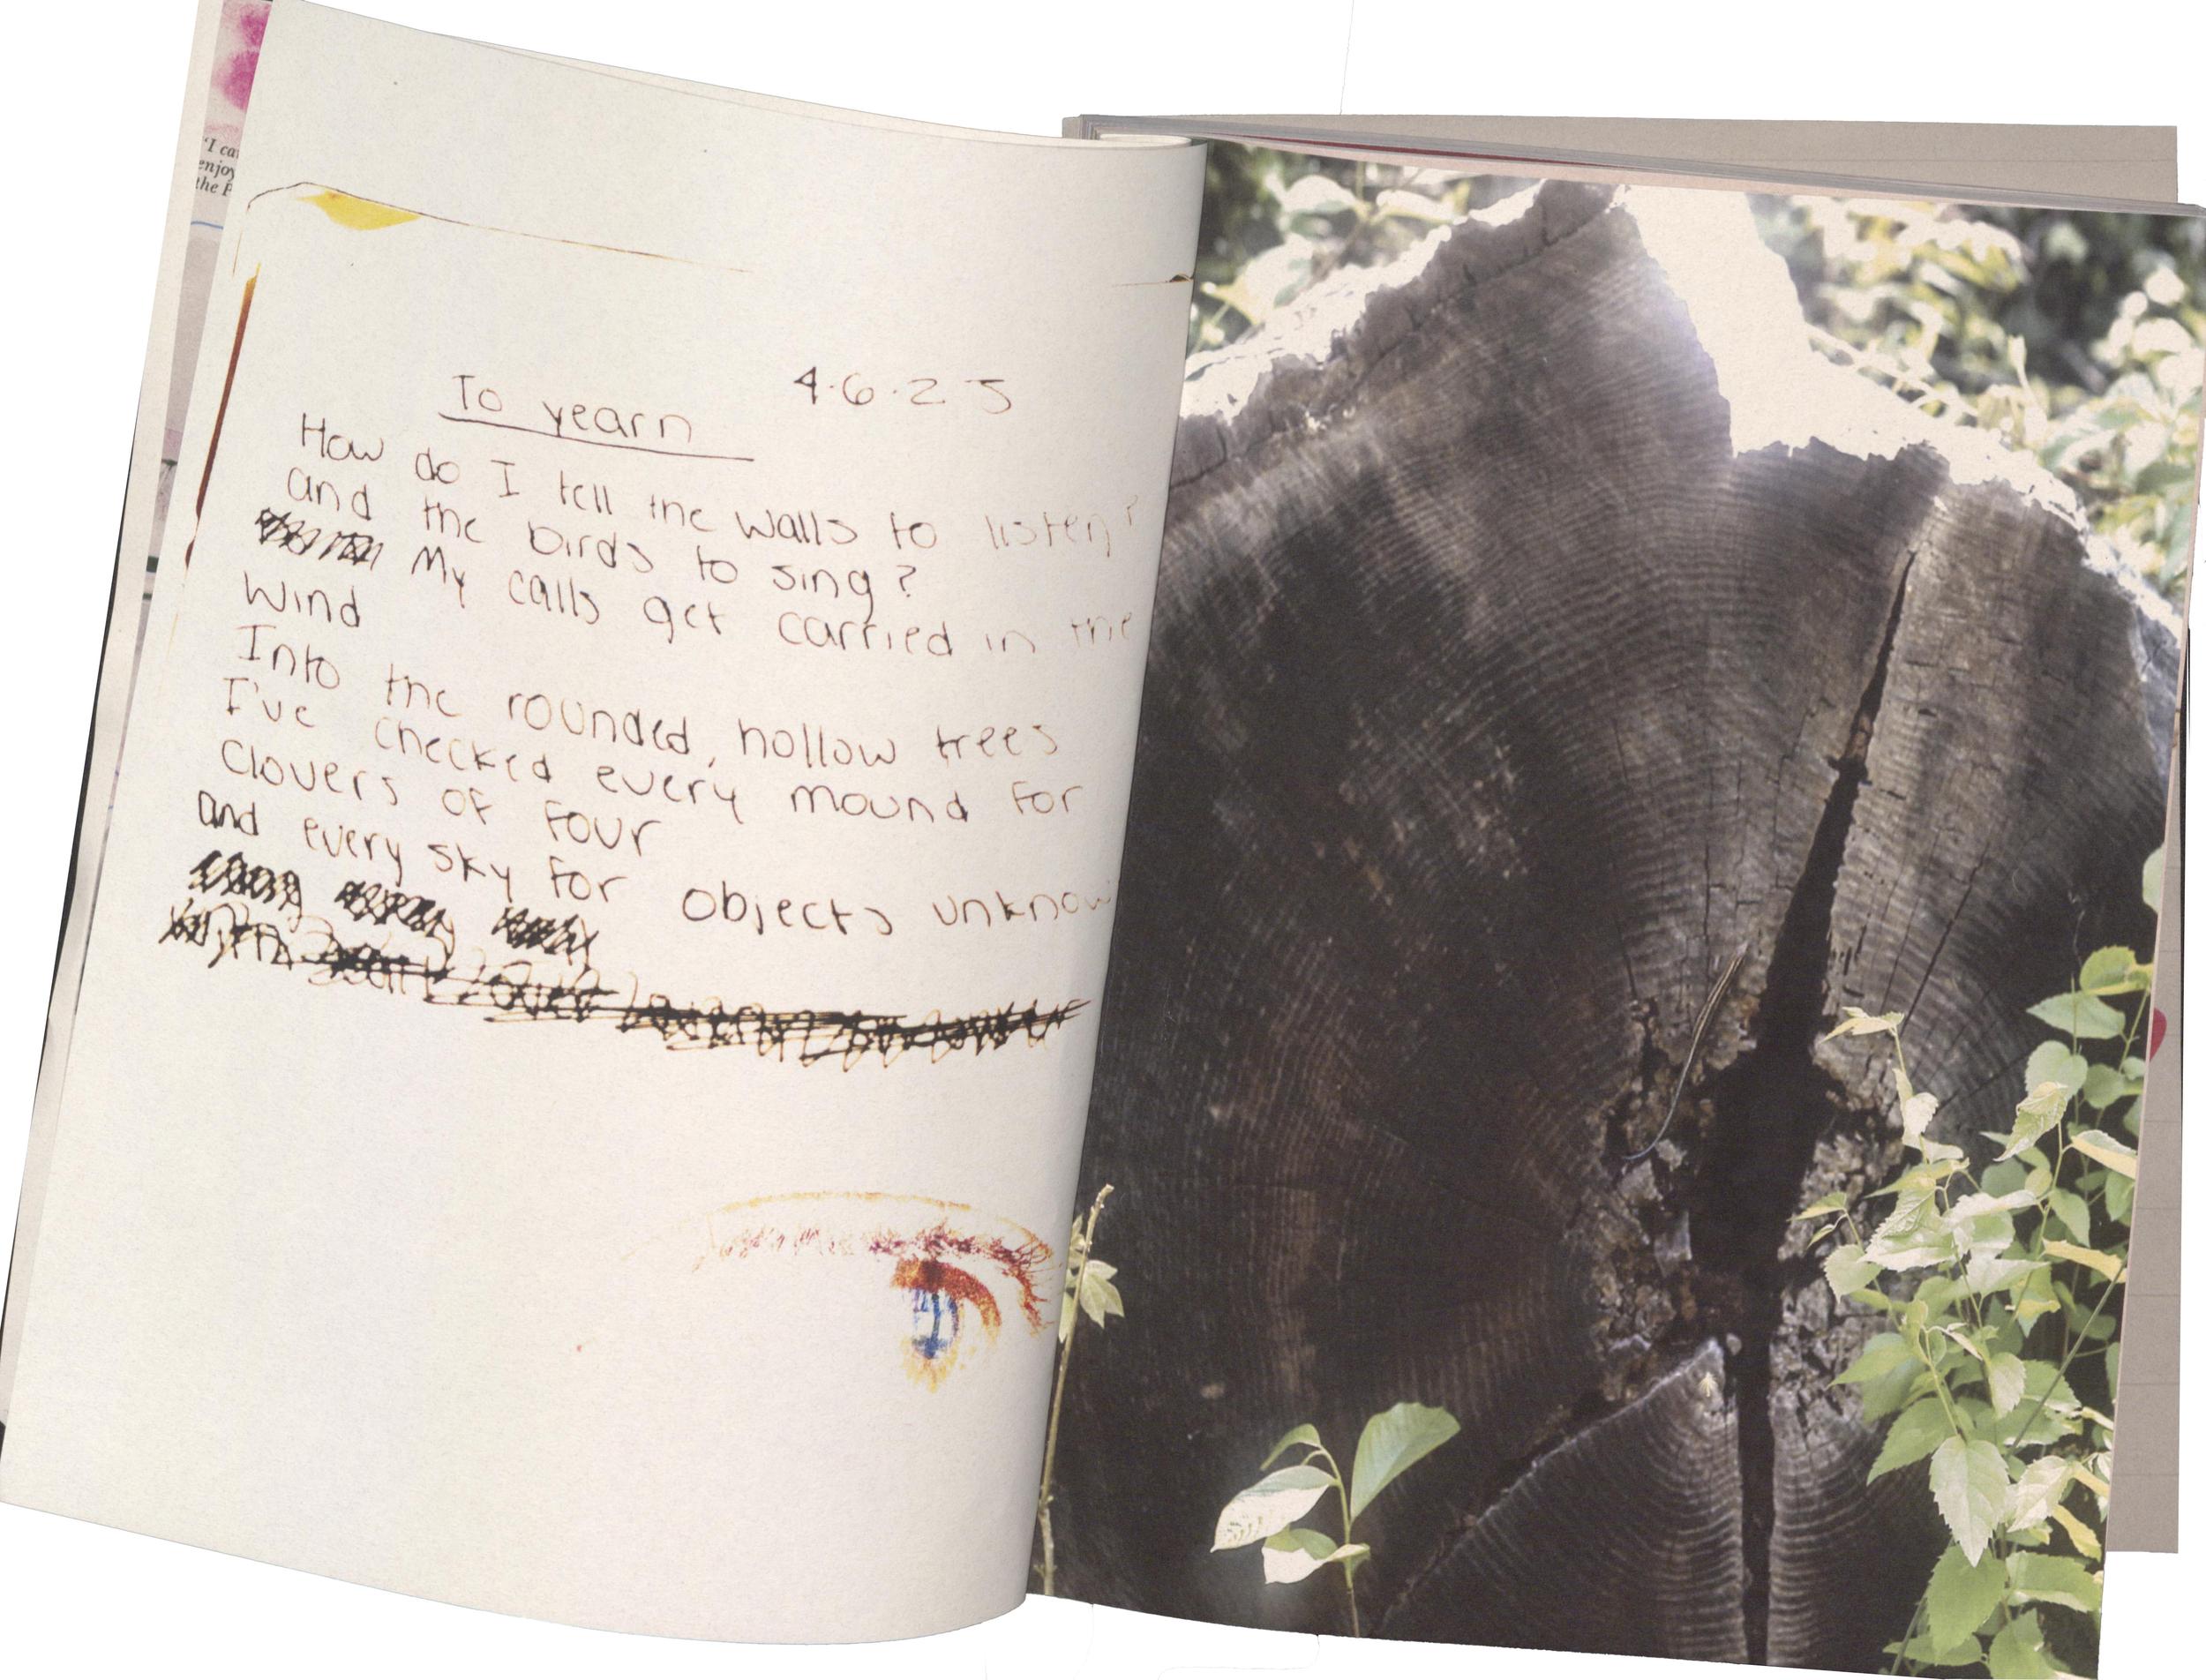 "I ca
enjoy
the P
To yearn 4.6.25
How do I tell the walls to listen?
and the birds to sing?
My calls get carried in the
Wind
Into the rounded, hollow trees
I've checked every mound for
Clovers of four
and every sky for objects unknow